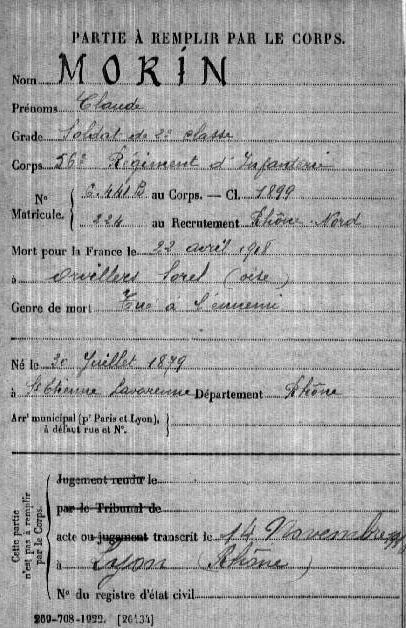 PARTIE À REMPLIR PAR LE CORPS.
Nom MORIN
Prénoms Claude
Grade Soldat de 2e classe
Corps 56e Régiment d'Infanterie
N° Matricule. { 6.441B au Corps. — Cl. 1899
224 au Recrutement Rhône-Nord
Mort pour la France le 22 avril 1918
à Orvillers Sorel (oise)
Genre de mort Tué à l'ennemi
Né le 30 Juillet 1879
à St Etienne Lavarenne Département Rhône
Arrt municipal (pr Paris et Lyon), à défaut rue et N°. }
Cette partie n'est pas à remplir par le Corps.
Jugement rendu le
par le Tribunal de
acte ou jugement transcrit le 14 Novembre
à Lyon (Rhône)
N° du registre d'état civil
269-708-1922. [26434]